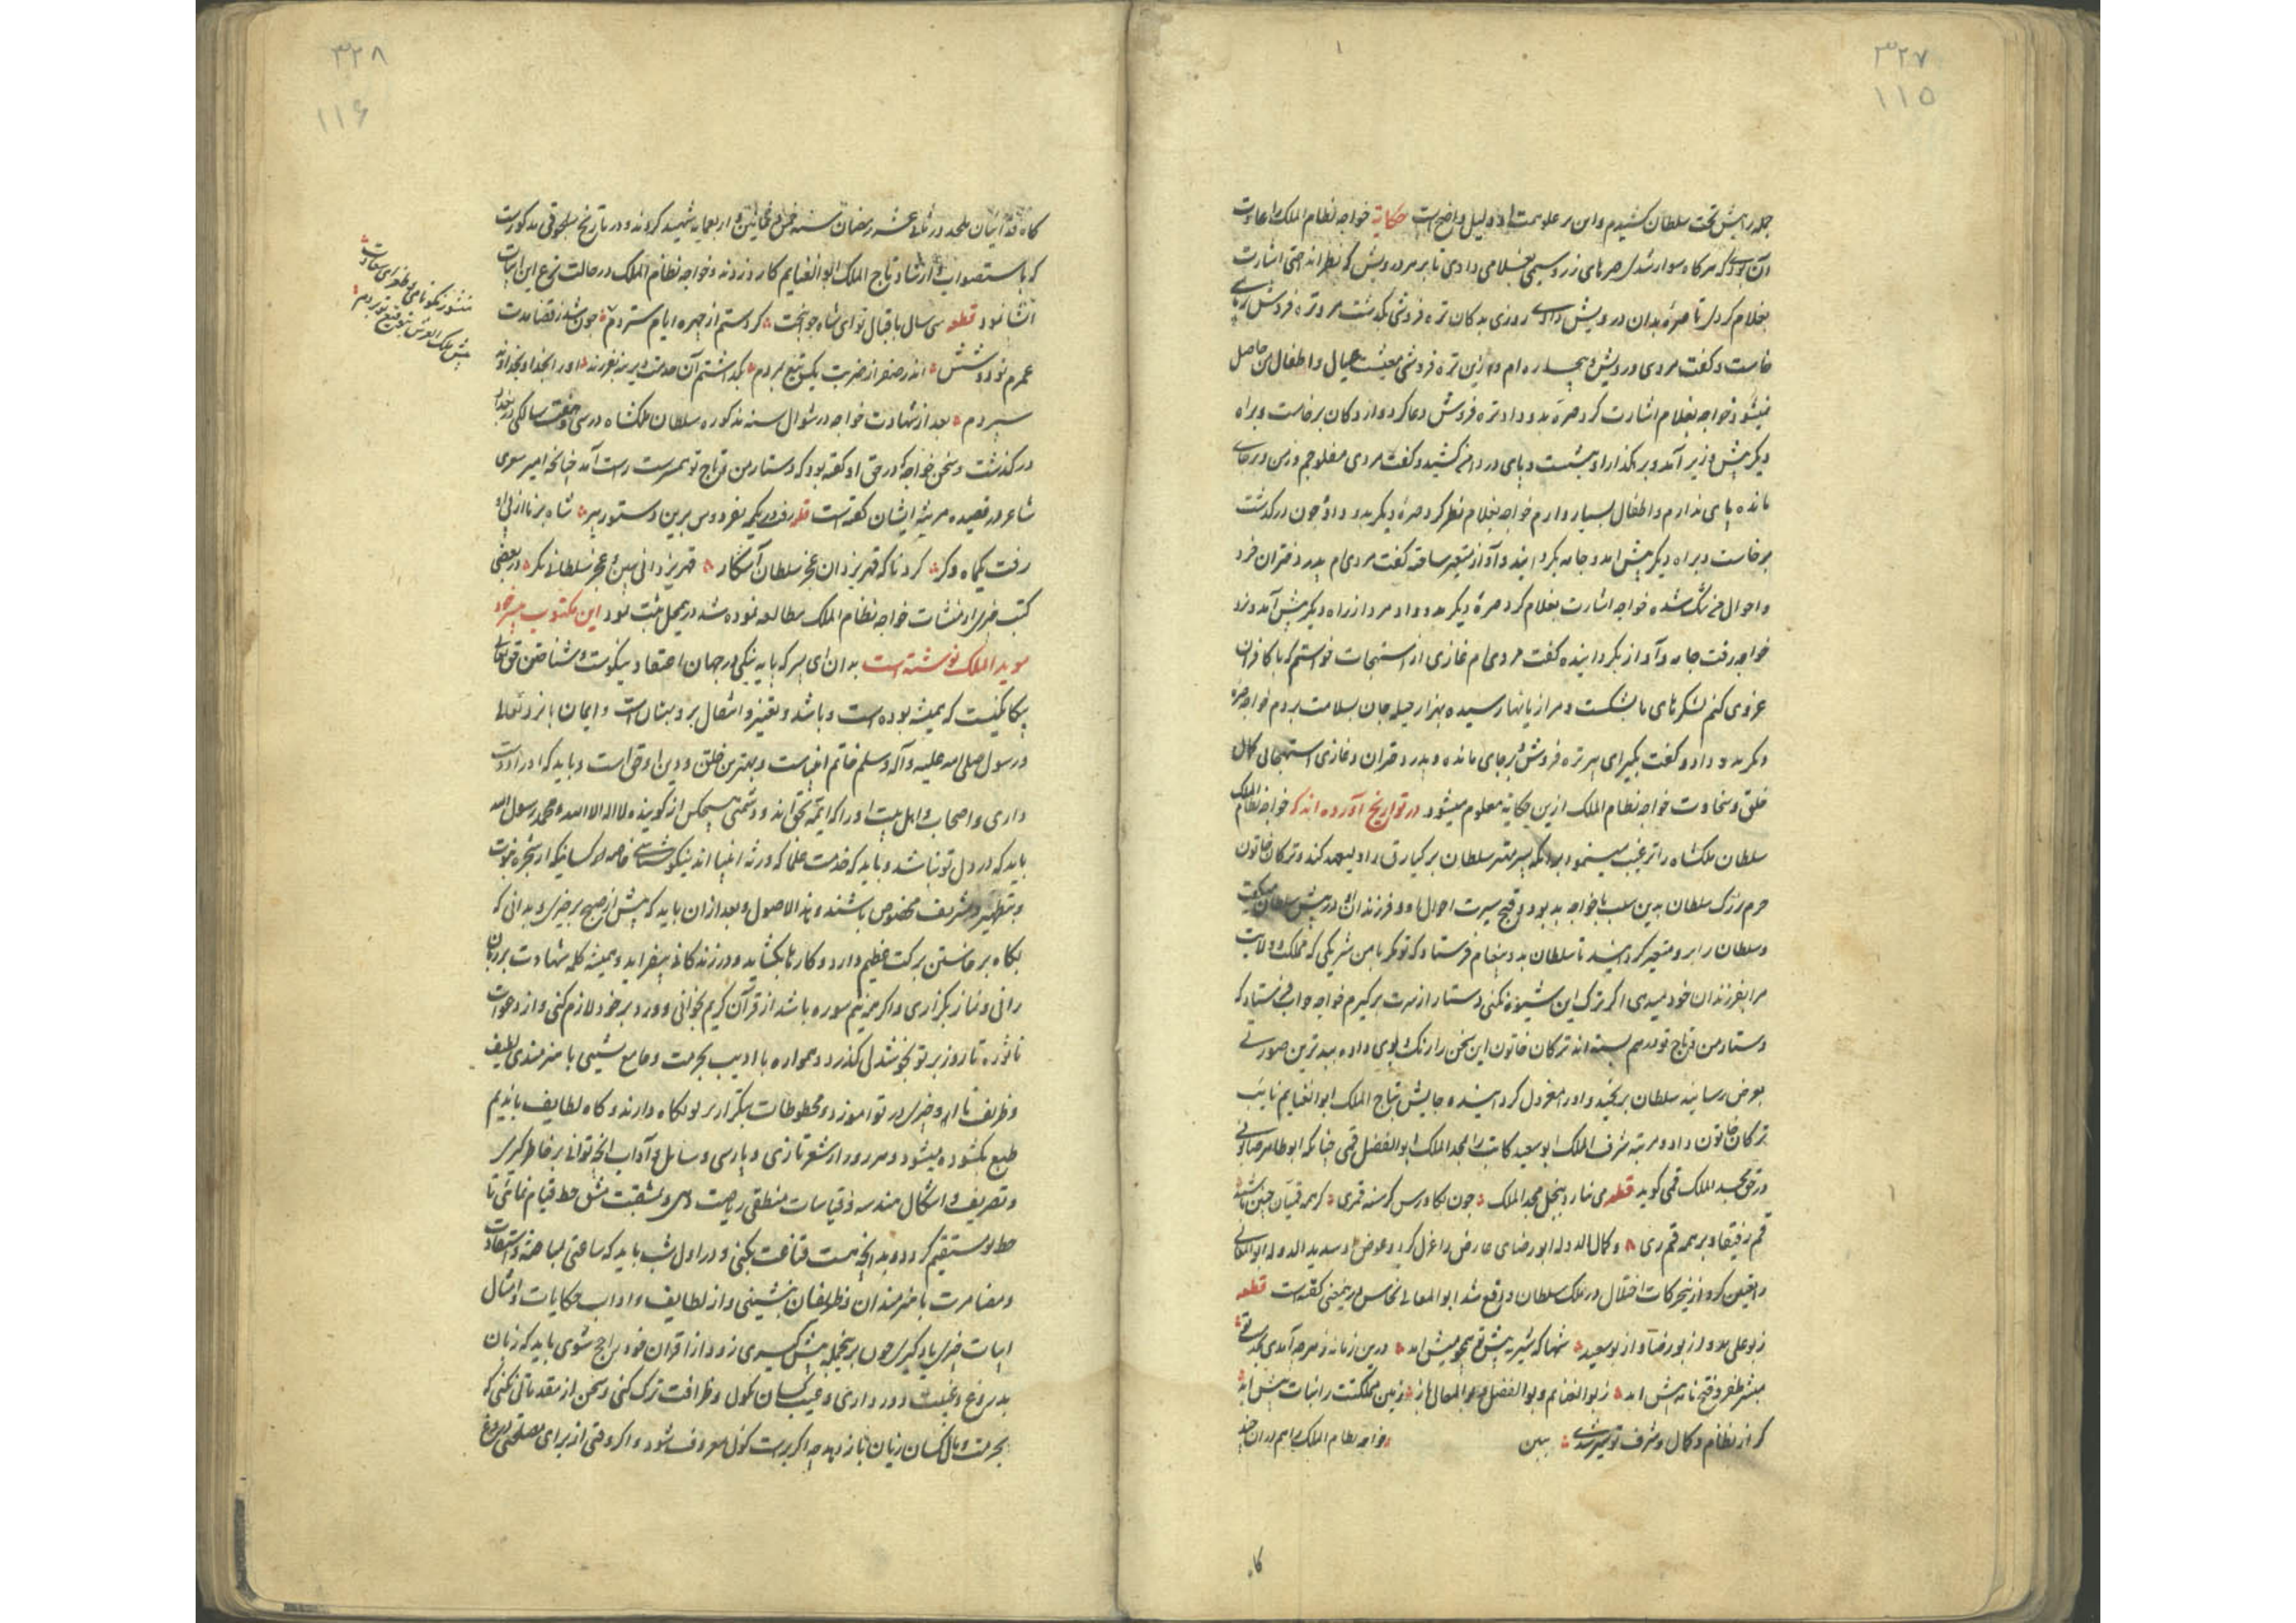 ۳۲۷
۱۱۵
جمله را پیش تخت سلطان کشیدم و این بر علو همت او دلیل واضح است حکایة خواجه نظام الملک را عادت
آن بودی که هر گاه سوار شدی صرهای زر و سیم بغلامی دادی تا بر هر درویش که نظر انداختی اشارت
بغلام کردی تا صرهٔ بدان درویش دادی روزی بدکان تره فروشی بگذشت مرد تره فروش بر پای
خاست و گفت مردی درویش و بیچاره ام و ازین تره فروشی معیشت عیال و اطفال من حاصل
نمیشود خواجه بغلام اشارت کرد صره بدو داد تره فروش دعا کرد و از دکان برخاست و براه
دیگر پیش وزیر آمد و بر گذار او بنشست و پای در دامن کشید و گفت مردی مفلوجم و زمن و بر جای
مانده پای ندارم و اطفال بسیار دارم خواجه بغلام نظر کرد صرهٔ دیگر بدو داد چون درگذشت
برخاست و براه دیگر پیش آمد و جامه بگردانید و آواز متغیر ساخته گفت مردی ام پدر دختران فرد
و احوال من تنگ شده خواجه اشارت بغلام کرد صرهٔ دیگر بدو داد مرد از راه دیگر پیش آمد و نزد
خواجه رفت جامه و آواز بگردانیده گفت مردی ام غازی از استیجاب خواستم که با کافران
غزوی کنم لشکرهای ما بشکست و مرا زیانها رسیده بهزار حیله جان بسلامت بردم خواجه صره
دیگر بدو داد و گفت بگیر ای پیر تره فروش بر جای مانده و پدر دختران و غازی استیجابی کمال
خلق و سخاوت خواجه نظام الملک ازین حکایة معلوم میشود در تواریخ آورده اند که خواجه نظام الملک
سلطان ملکشاه را ترغیب مینمود بر آنکه پسر مهتر سلطان برکیارق را ولیعهد کند و ترکان خاتون
حرم بزرگ سلطان بدین سبب با خواجه بد بود و قبح سیرت احوال او و فرزندان او در پیش سلطان میگفت
و سلطان را برو متغیر گردانید تا سلطان بدو پیغام فرستاد که تو مگر با من شریکی که مملکت و ولایت
مرا بفرزندان خود میدهی اگر ترک این شیوه نکنی دستار از سرت برگیرم خواجه جواب فرستاد که
دستار من و تاج تو در هم بسته اند ترکان خاتون این سخن را رنگ و بوی داده ببدترین صورتی
بعرض رسانید سلطان برنجید و او را معزول گردانیده جایش بتاج الملک ابوالغنایم نایب
ترکان خاتون داد و مرتبه شرف الملک ابوسعید کاتب را بمجد الملک ابوالفضل قمی چنانکه ابوطاهر خاتونی
در حق مجد الملک قمی گوید قطعه می بنازد ببخل مجد الملک چون بکاورس گرسنه قمری گر همه قمیان چنین باشند
قم رفیقا و بر همه قم ری و کمال الدوله ابورضای عارض را عزل کرد و عوض او سدید الدوله ابوالمعالی
را تعین کرد ازین حرکات اختلال در ملک سلطان واقع شد ابوالمعالی نحاس درین معنی گفته است قطعه
ز بو علی بد و از بو رضا و از بو سعید شها که شیر به پیش تو همچو میش آمد درین زمانه ز هر چه آمدی بدرگه تو
مبشر ظفر و فتح نامه پیش آمد ز بوالغنایم و بوالفضل و بوالمعالی باز زمین مملکتت را نبات نیش آمد
گر از نظام و کمال و شرف تو سیر شدی ببین خواجه نظام الملک را هم در آن چند
گاه
۳۲۸
۱۱۶
گاه فدائیان ملحد در ثلاث عشر رمضان سنه خمس و ثمانین و اربعمایه شهید کردند و در تاریخ سلجوقی مذکورست
که باستصواب و ارشاد تاج الملک ابوالغنایم کارد زدند و خواجه نظام الملک در حالت نزع این ابیات
انشا نمود قطعه سی سال باقبال تو ای شاه جوانبخت گرد ستم از چهره ایام ستردم چون شد ز قضا مدت
عمرم نود و شش اندر صفر از ضربت یک تیغ بمردم بگذاشتم آن خدمت دیرینه بفرزند او را بخدا و بخداوند
سپردم بعد از شهادت خواجه در شوال سنه مذکوره سلطان ملکشاه در سی و هفت سالگی در بغداد
درگذشت و سخن خواجه که در حق او گفته بود که دستار من و تاج تو همسرست راست آمد چنانچه امیر معزی
شاعر در قصیده مرثیه ایشان گفته است قطعه رفت در یکمه بفردوس برین دستور پیر شاه برنا از پی او
رفت یکماه دگر کرد ناگه قهر یزدان عجز سلطان آشکار قهر یزدانی ببین و عجز سلطانی نگر در بعضی
کتب چیزی از منشآت خواجه نظام الملک مطالعه نموده شد درین محل ثبت نمود این مکتوب بپسر خود
موید الملک نوشته است بدان ای پسر که پایه نیکی در جهان اعتقاد نیکوست و شناختن حق تعالی
بیگانگیست که همیشه بوده است و باشد و تغییر و انتقال برو بهتان است و ایمان بایزد تعالی
و رسول صلی الله علیه و آله و سلم خاتم انبیاست و بهترین خلق و دین او حق است و باید که ارادت
داری و اصحاب و اهل بیت او را که ائمه بحق اند و دشمنی هیچکس از گوینده لا اله الا الله محمد رسول الله
باید که در دل تو نباشد و باید که خدمت علما که ورثه انبیا اند نیکو شناسی خاصه کسانیکه از شجره نبوت
و بتطهیر و تشریف مخصوص باشند و هذا الاصول و بعد از آن باید که پیش از صبح برخیزی و بدانی که
بگاه برخاستن برکت عظیم دارد و کارها بگشاید و در زندگانی بیفزاید و همیشه کلمه شهادت بر زبان
رانی و نماز بگزاری و اگر همه نیم سوره باشد از قرآن کریم بخوانی و ورد بر خود لازم کنی و از دعوات
ماثوره تا روز بر تو بخوشدلی گذرد و همواره با ادیب بحرمت و جامع نشینی با هنرمندی لطیف
و ظریف تا او چیزی در تو آموزد و محفوظات بتکرار بر تو نگاه دارند و گاه لطایف باندیم
طبع گشوده میشود و هر روز از شعر تازی و پارسی و سایل و آداب آنچه توانی بر خاطر گیری
و تصریف و اشکال هندسه و قیاسات منطقی ریاضت دهی و بمشقت مشق خط قیام نمائی تا
خط تو مستقیم گردد و بدانچه هست قناعت نکنی و در اول شب باید که ساعتی بمباحثه و استفادت
و مسامرت با هنرمندان و ظریفان بنشینی و از لطایف و آداب حکایات و امثال
ابیات چیزی یاد گیری چون برین جمله پیش گیری زود از اقران خود راجح شوی باید که زبان
بدروغ و غیبت دور داری و عیب کسان مگوی و ظرافت ترک کنی و سخن از مقدماتی نکنی که
بحرمت و مال کسان زیان باز دهد چه اگر براست گوئی معروف شود و اگر وقتی از برای مصلحتی دروغ
منشور نکو نامی و طغرای سعادت
پیش ملک العرش بتوقیع تو بردم